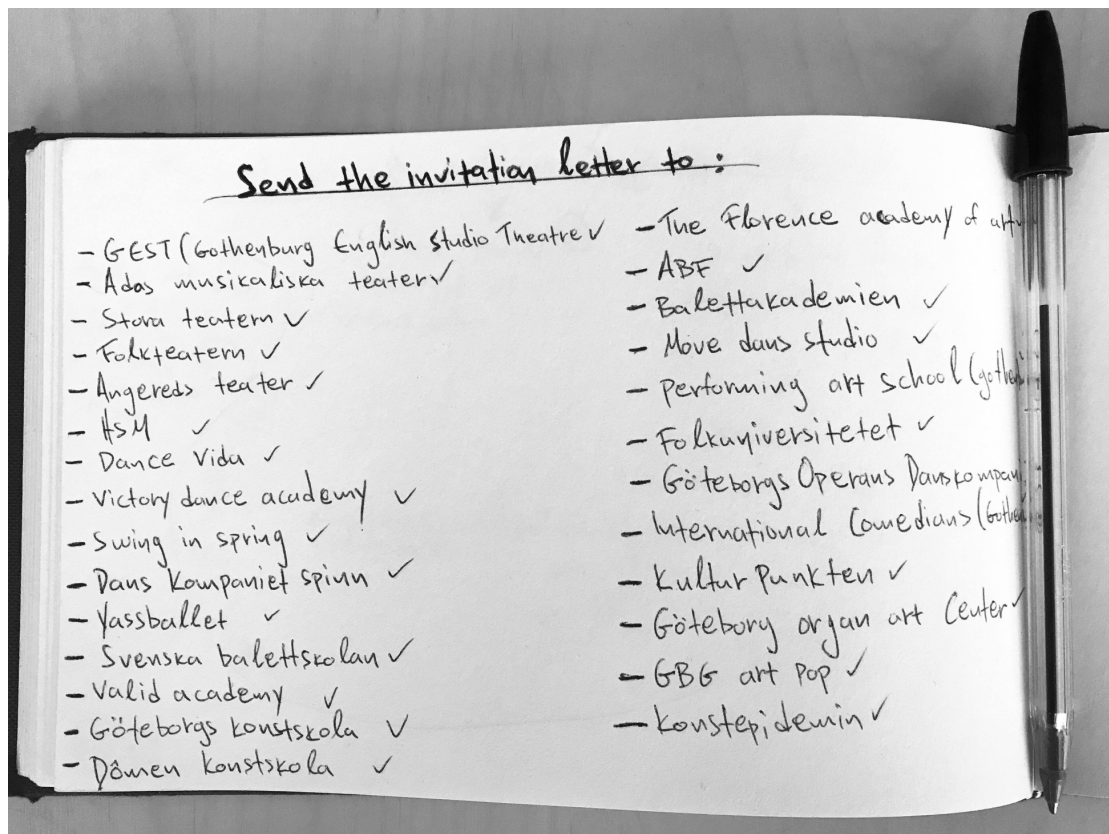 Send the invitation letter to:
- GEST (Gothenburg English Studio Theatre ✓
- Adas musikaliska teater ✓
- Stora teatern ✓
- Folkteatern ✓
- Angereds teater ✓
- HSM ✓
- Dance Vida ✓
- Victory dance academy ✓
- Swing in spring ✓
- Dans Kompaniet spinn ✓
- Yassballet ✓
- Svenska balettskolan ✓
- Valid academy ✓
- Göteborgs konstskola ✓
- Dômen konstskola ✓
- The Florence academy of art
- ABF ✓
- Balettakademien ✓
- Move dans studio ✓
- Performing art school (gothe
- Folkuniversitetet ✓
- Göteborgs Operans Danskompani
- International Comedians (Gothe
- Kultur Punkten ✓
- Göteborg organ art Center ✓
- GBG art pop ✓
- Konstepidemin ✓